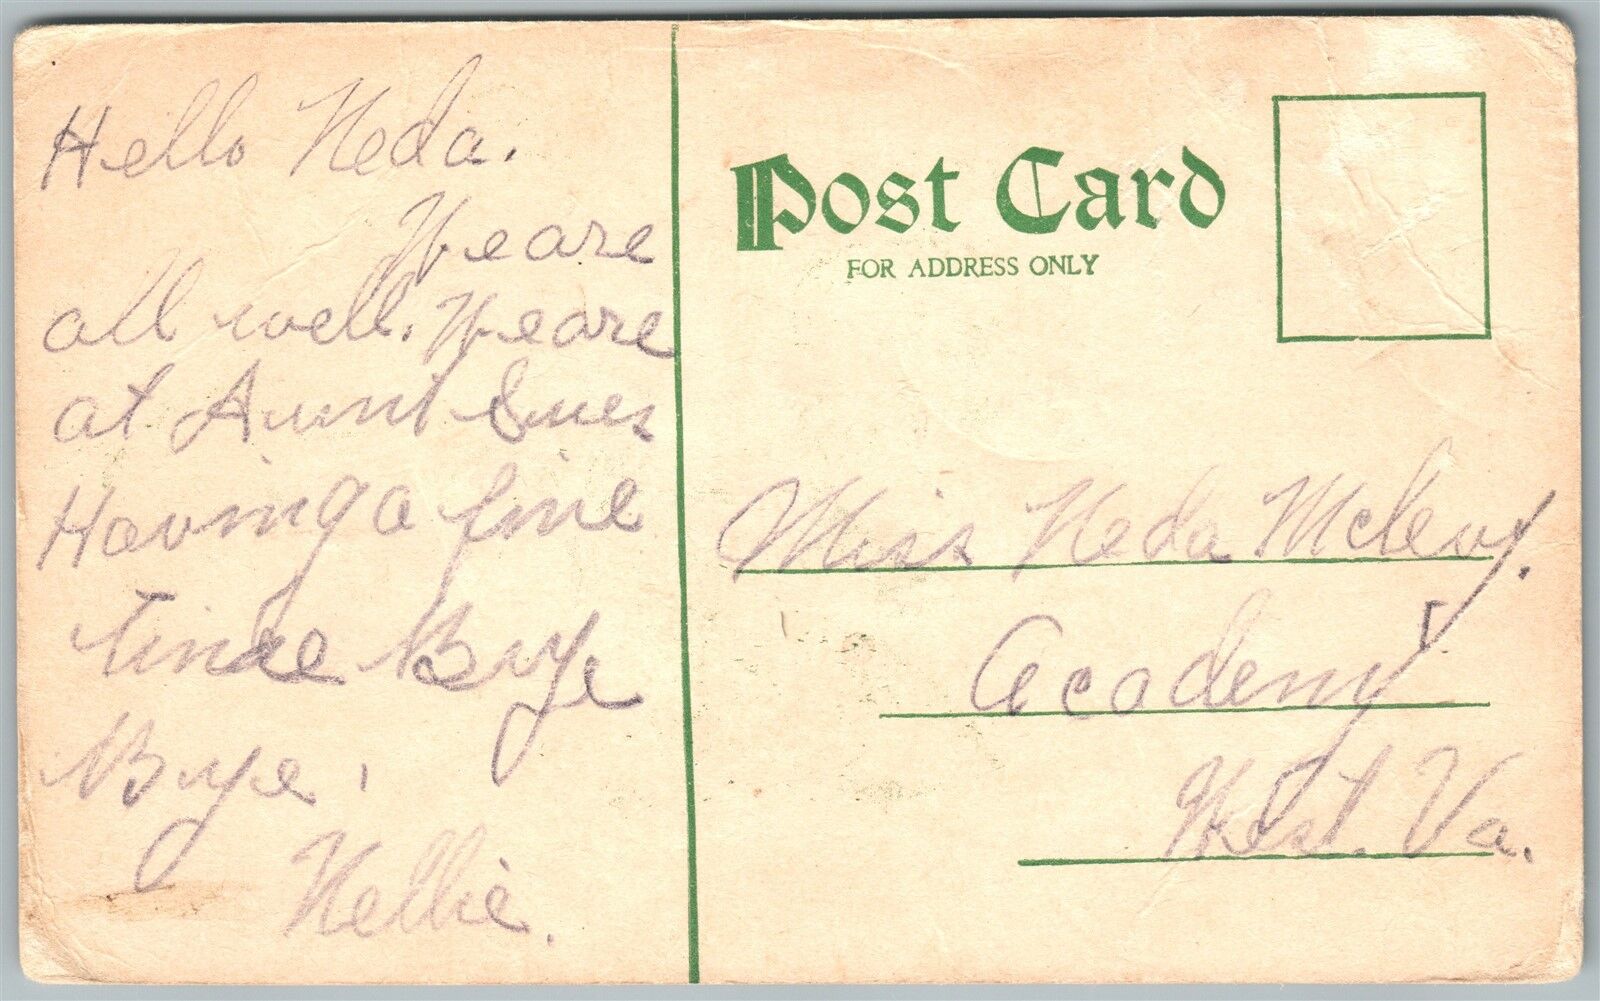 Hello Neda.
We are
all well. We are
at Aunt Sues
Having a fine
time Bye
Bye.
Nellie.
Post Card
FOR ADDRESS ONLY
Miss Neda McLevy.
Academy
West. Va.